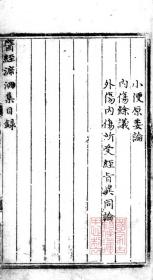 小便原委論
內傷餘議
外傷內傷所受經旨異同論
醫經溯洄集目錄